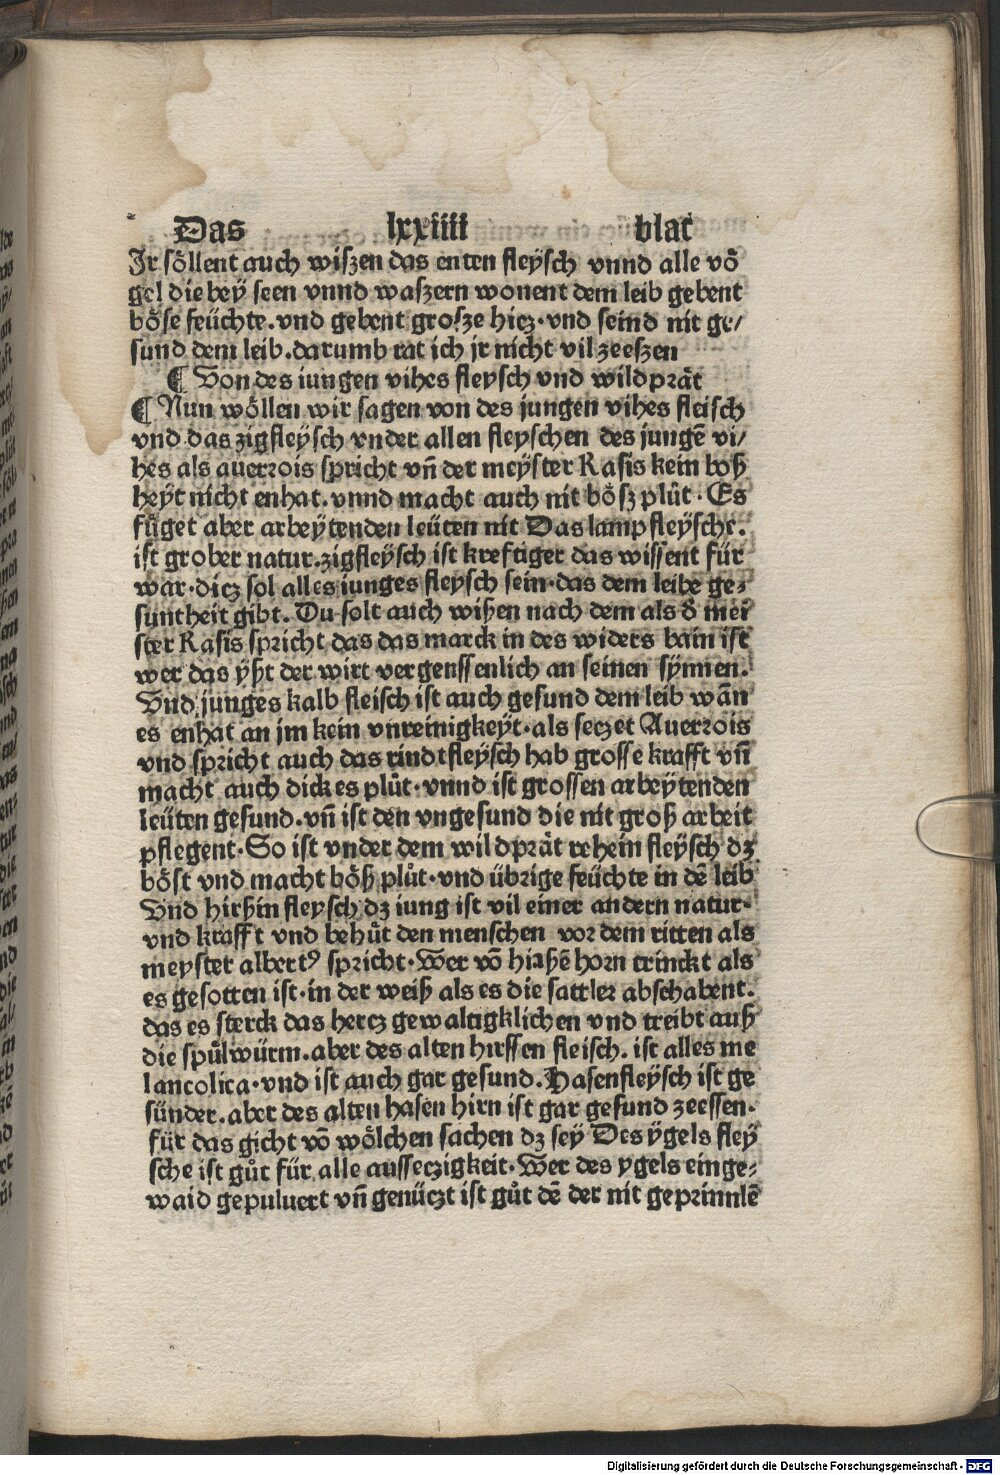 Das lxxiiii blat
Ir söllent auch wiszen das enten fleysch vnnd alle vö
gel die bey seen vnnd waszern wonent dem leib gebent
böse feüchte. vnd gebent grosze hicz. vnd seind nit ge/
sund dem leib. darumb rat ich jr nicht vil zeeszen
¶ Von des iungen vihes fleysch vnd wildprät
¶ Nun wöllen wir sagen von des jungen vihes fleisch
vnd das zigfleysch vnder allen fleyschen des jungē vi/
hes als auerrois spricht vn̄ der meyster Rasis kein boß
heyt nicht enhat. vnnd macht auch nit bösz plůt. Es
füget aber arbeytenden leüten nit Das lampfleysche.
ist grober natur. zigfleysch ist kreftiger das wissent für
war. dicz sol alles iunges fleysch sein. das dem leibe ge⸗
suntheit gibt. Du solt auch wißen nach dem als d̄ mei
ster Rasis spricht das das marck in des widers bain ist
wer das yßt der wirt vergenssenlich an seinen synnen.
Vnd junges kalb fleisch ist auch gesund dem leib wān
es enhat an jm kein vnreinigkeyt. als seczet Auerrois
vnd spricht auch das rindtfleysch hab grosse krafft vn̄
macht auch dickes plůt. vnnd ist grossen arbeytenden
leüten gesund. vn̄ ist den vngesund die nit groß arbeit
pflegent. So ist vnder dem wildprät rehein fleysch dz
böst vnd macht böß plůt. vnd übrige feüchte in dē leib
Vnd hirßin fleysch dz iung ist vil einer andern natur.
vnd krafft vnd behůt den menschen vor dem ritten als
meyster albertꝰ spricht. Wer vō hirßē horn trinckt als
es gesotten ist. in der weiß als es die sattler abschabent.
das es sterck das hercz gewaltigklichen vnd treibt auß
die spůlwürm. aber des alten hirssen fleisch. ist alles me
lancolica. vnd ist auch gar gesund. Hasenfleysch ist ge
sünder. aber des alten hasen hirn ist gar gesund zeessen.
für das gicht vō wölchen sachen dz sey Des ygels fley
sche ist gůt für alle ausseczigkeit. Wer des ygels einge⸗
waid gepuluert vn̄ genüczt ist gůt dē der nit geprinnlē
Digitalisierung gefördert durch die Deutsche Forschungsgemeinschaft - DFG